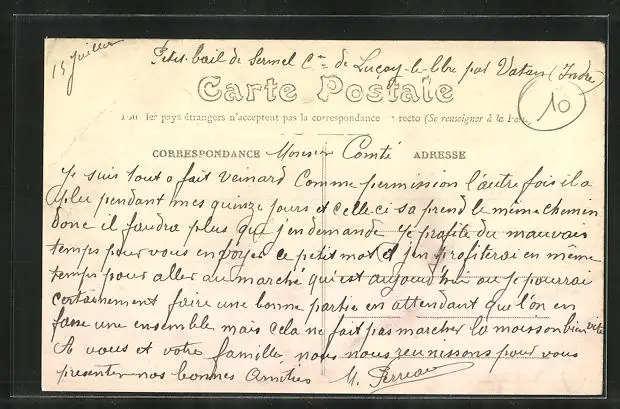 15 Juillet
Petit-bail de Sermel Cne de Luçay-le-libre par Vatan (Indre)
10
Carte Postale
Tous les pays étrangers n'acceptent pas la correspondance au recto (Se renseigner à la Poste)
CORRESPONDANCE Monsieur Comté ADRESSE
Je suis tout a fait veinard comme permission l'autre fois il a
plu pendant mes quinze jours et celle ci sa prend le même chemin
donc il faudra plus que j'en demande Je profite du mauvais
temps pour vous envoyer ce petit mot et j'en profiterai en même
temps pour aller au marché qui est aujourd'hui ou je pourrai
certainement faire une bonne partie en attendant que l'on en
fasse une ensemble mais cela ne fait pas marcher la moisson bien vite
A vous et votre famille nous nous réunissons pour vous
presenter nos bonnes Amitiés M. Perreau